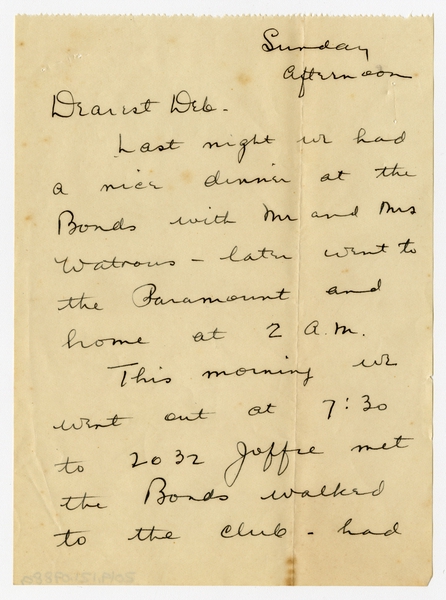 Sunday
Afternoon
Dearest Deb -
Last night we had
a nice dinner at the
Bonds with Mr and Mrs
Watrous - later went to
the Paramount and
home at 2 A.M.
This morning we
went out at 7:30
to 2032 Joffre met
the Bonds walked
to the club - had